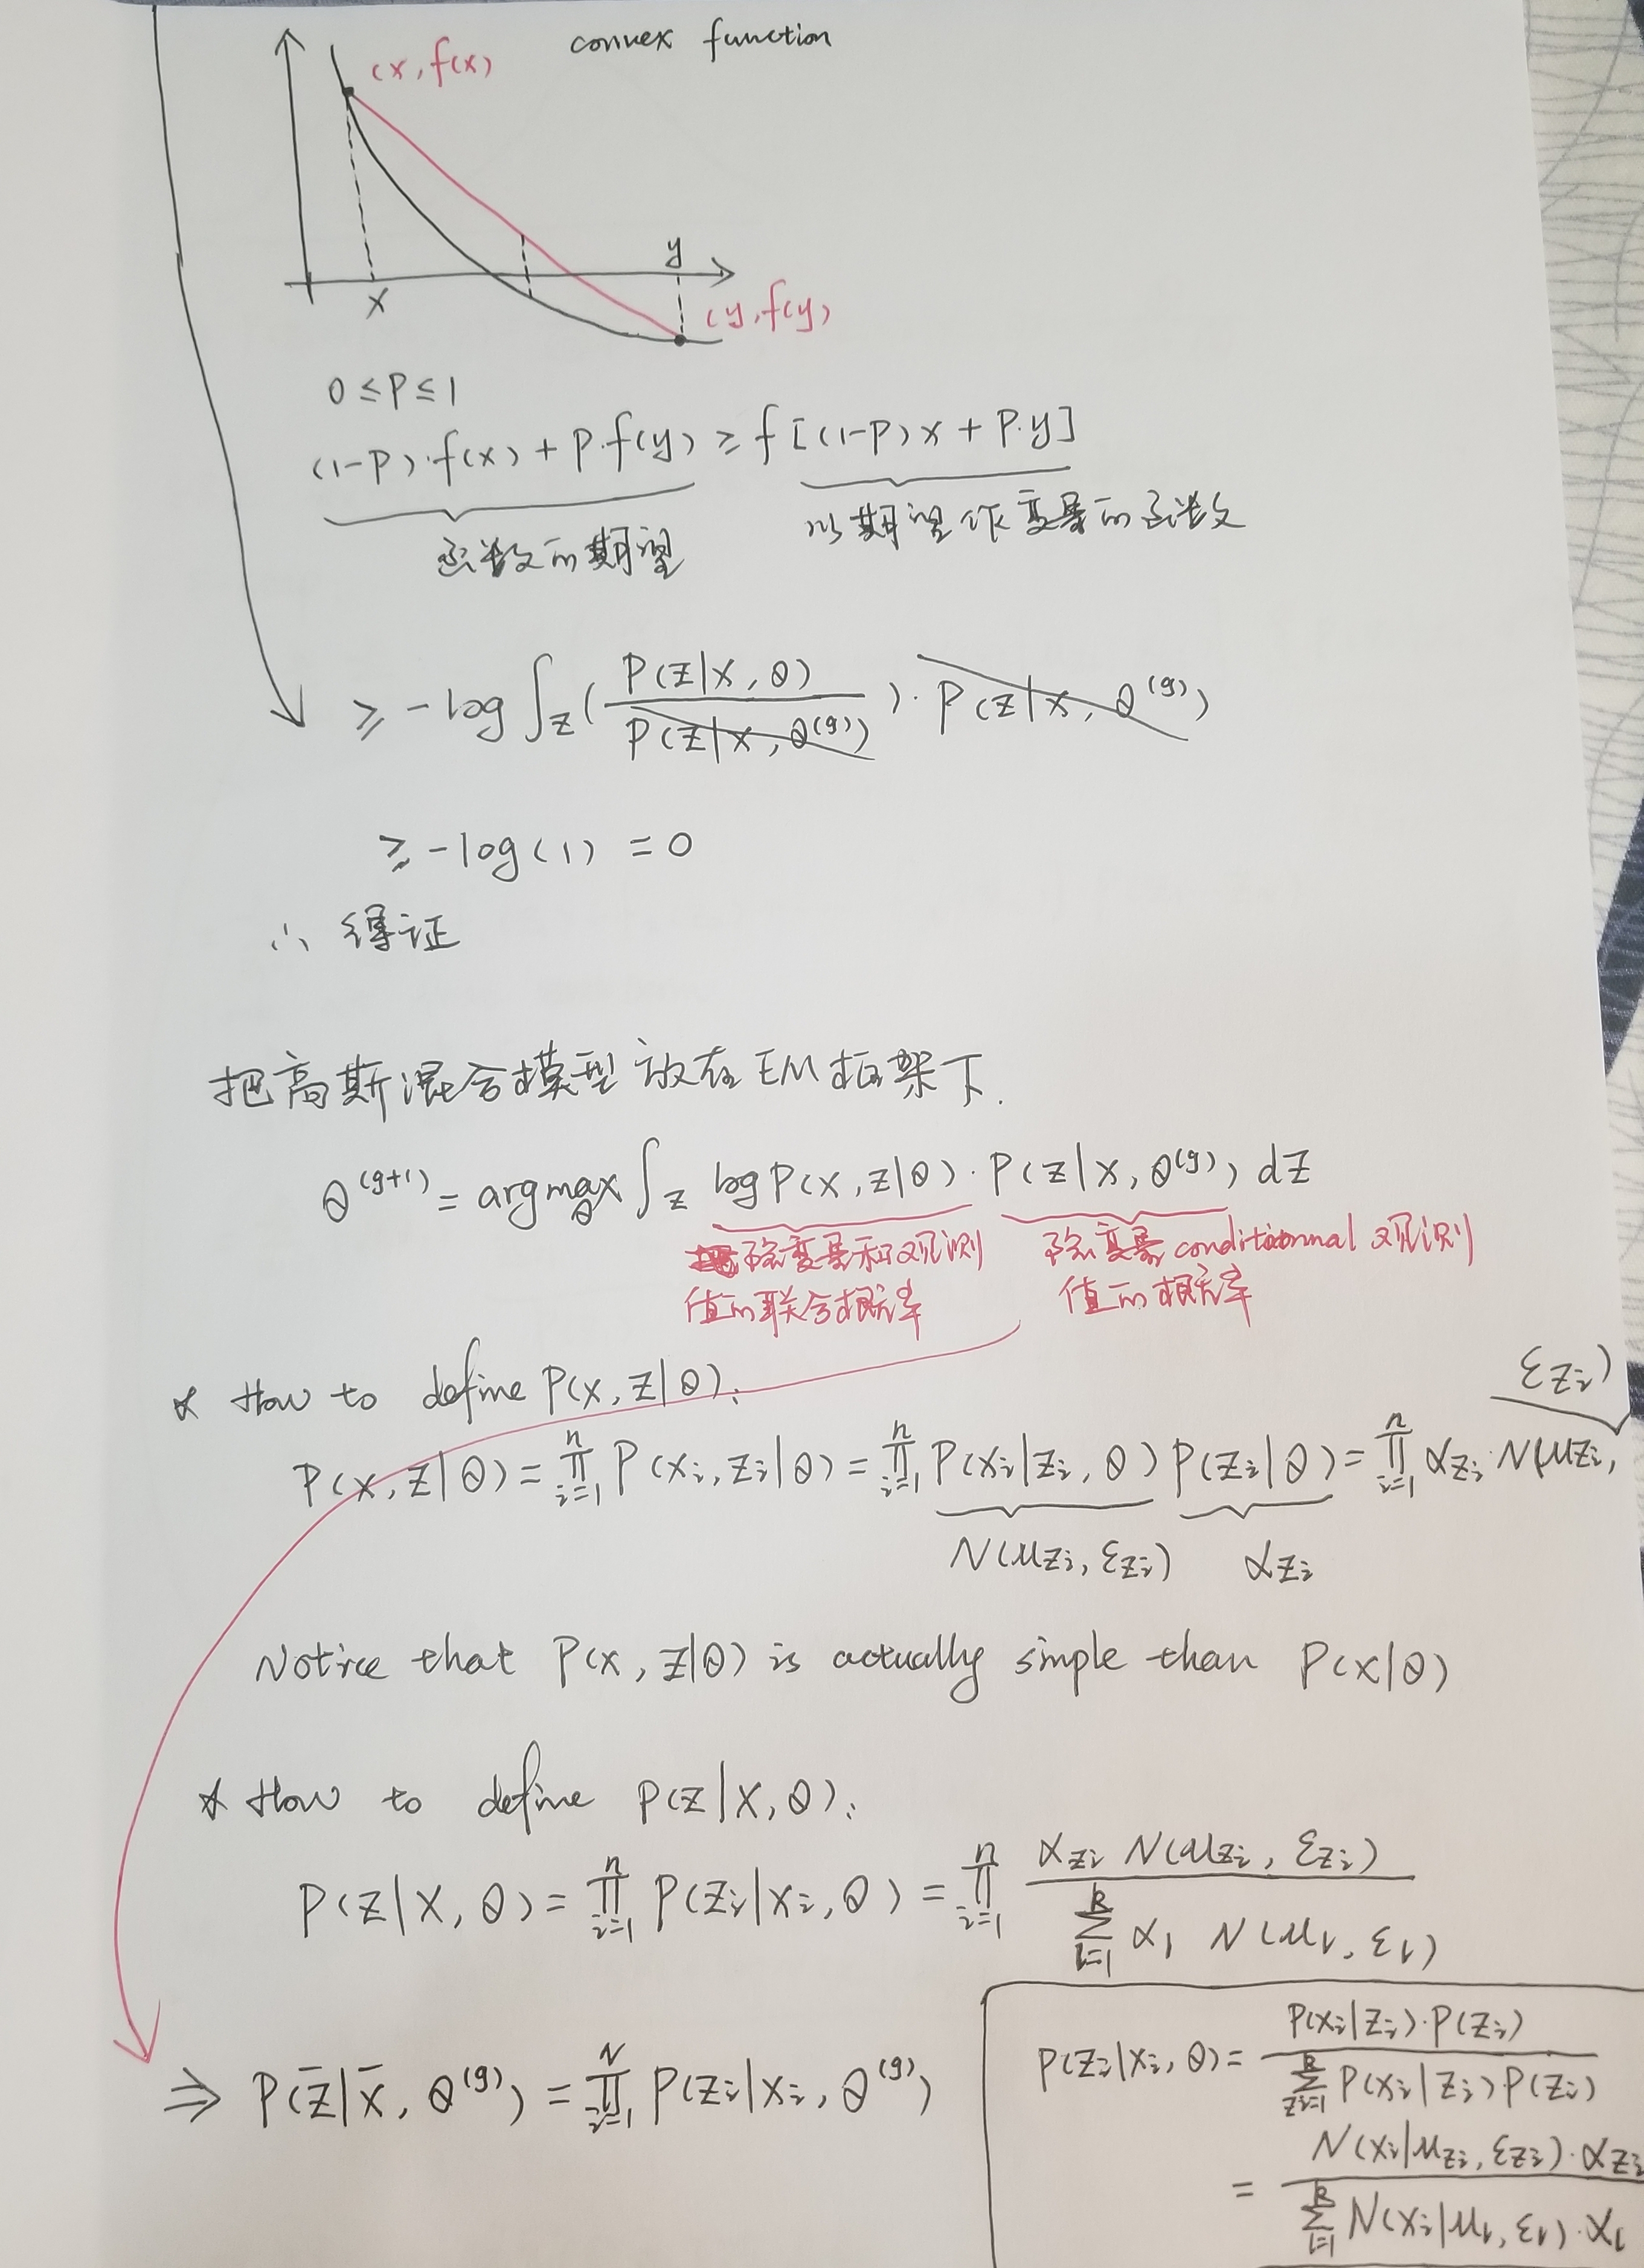 convex function
(x, f(x)
x
y
(y, f(y)
0 ≤ P ≤ 1
(1-P)·f(x) + P·f(y) ≥ f[(1-P)x + P·y]
函数的期望
以期望作变量的函数
≥ -log ∫_Z ( P(Z|X, θ) / P(Z|X, θ^(g)) ) · P(Z|X, θ^(g))
≥ -log(1) = 0
∴ 得证
把高斯混合模型放在EM框架下.
θ^(g+1) = argmax_θ ∫_Z log P(X, Z|θ) · P(Z|X, θ^(g)) dZ
隐变量和观测
值的联合概率
隐变量 conditional 观测
值的概率
* How to define P(X, Z|θ):
P(X, Z|θ) = ∏_{i=1}^n P(x_i, z_i|θ) = ∏_{i=1}^n P(x_i|z_i, θ) P(z_i|θ) = ∏_{i=1}^n α_{z_i} · N(μ_{z_i}, Σ_{z_i})
N(μ_{z_i}, Σ_{z_i})
α_{z_i}
Notice that P(X, Z|θ) is actually simple than P(X|θ)
* How to define P(Z|X, θ):
P(Z|X, θ) = ∏_{i=1}^n P(z_i|x_i, θ) = ∏_{i=1}^n α_{z_i} N(μ_{z_i}, Σ_{z_i}) / ∑_{l=1}^k α_l N(μ_l, Σ_l)
⇒ P(z̄|x̄, θ^(g)) = ∏_{i=1}^N P(z_i|x_i, θ^(g))
P(z_i|x_i, θ) = P(x_i|z_i)·P(z_i) / ∑_{z_i=1}^k P(x_i|z_i)P(z_i)
= N(x_i|μ_{z_i}, Σ_{z_i})·α_{z_i} / ∑_{l=1}^k N(x_i|μ_l, Σ_l)·α_l